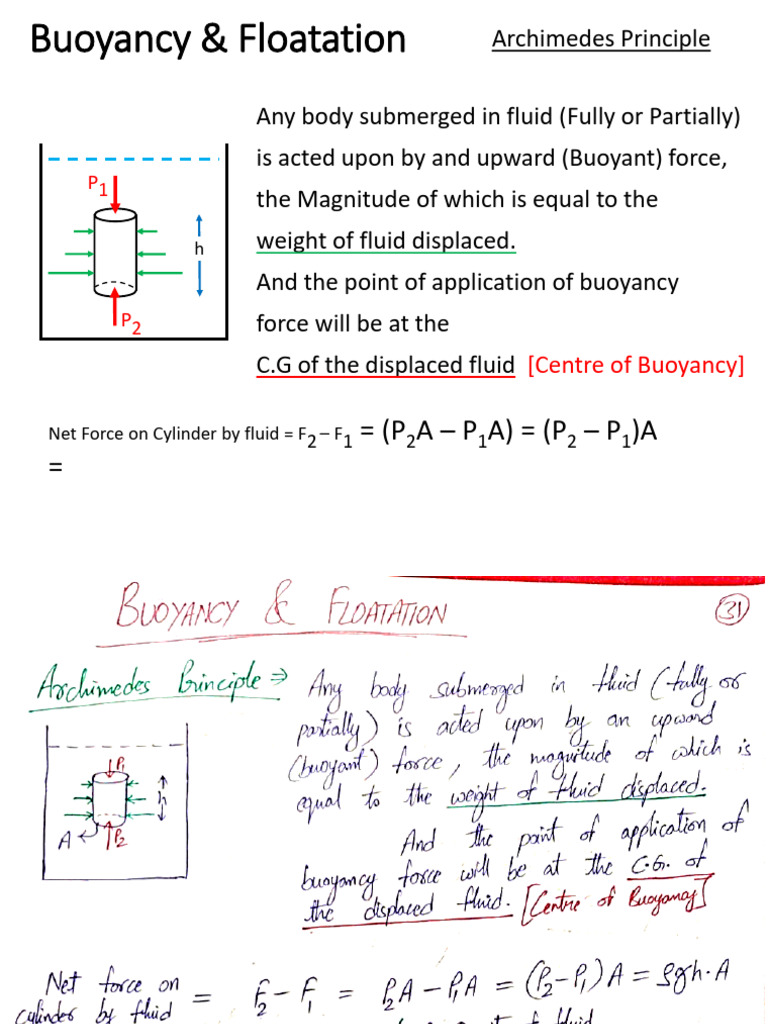 Buoyancy & Floatation
Archimedes Principle
Any body submerged in fluid (Fully or Partially)
is acted upon by and upward (Buoyant) force,
the Magnitude of which is equal to the
weight of fluid displaced.
And the point of application of buoyancy
force will be at the
C.G of the displaced fluid [Centre of Buoyancy]
P1
h
P2
Net Force on Cylinder by fluid = F2 – F1 = (P2A – P1A) = (P2 – P1)A
=
BUOYANCY & FLOATATION
31
Archimedes Principle ⇒ Any body submerged in fluid (fully or
partially) is acted upon by an upward
(buoyant) force, the magnitude of which is
equal to the weight of fluid displaced.
And the point of application of
buoyancy force will be at the C.G. of
the displaced fluid. [Centre of Buoyancy]
P1
h
A
P2
Net force on
cylinder by fluid = F2 – F1 = P2A – P1A = (P2 – P1)A = ρgh·A
fluid